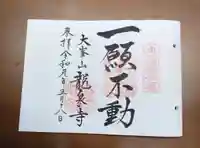 一願不動
大峯山 龍泉寺
奉拝 令和元年五月十八日